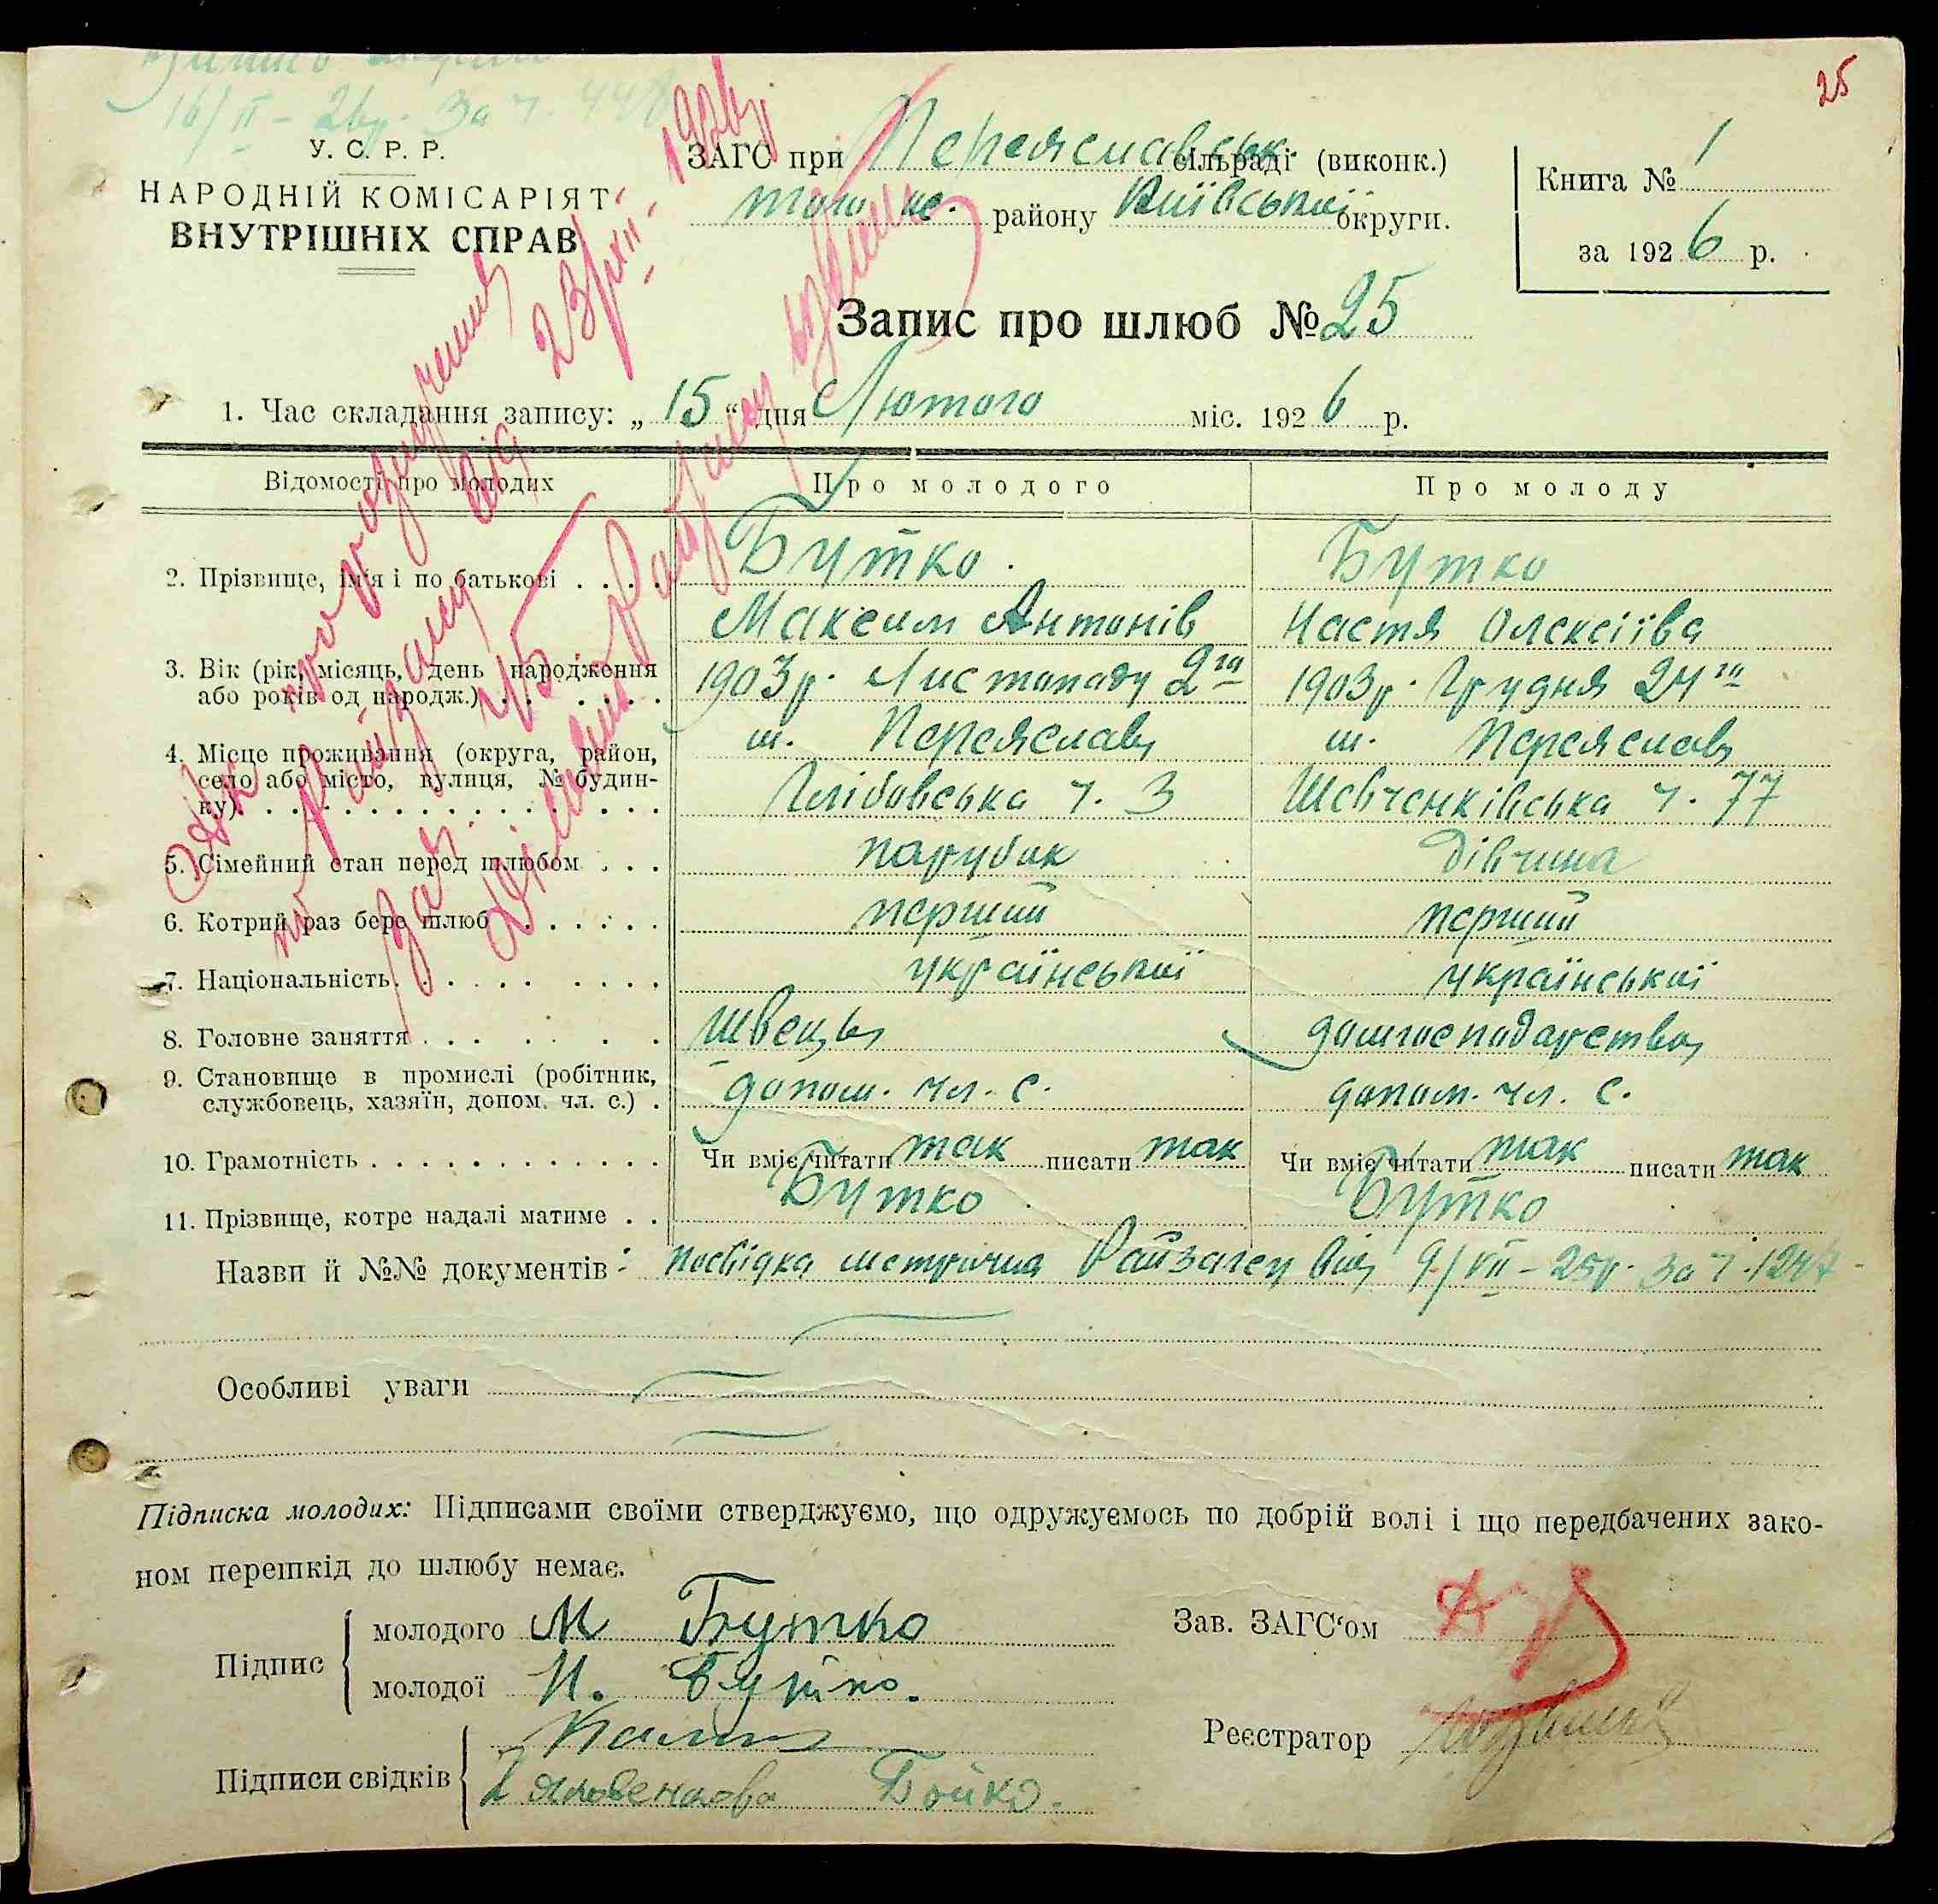 25
16/II – 26р. За ч. 448
У. С. Р. Р.
НАРОДНІЙ КОМІСАРІЯТ
ВНУТРІШНІХ СПРАВ
ЗАГС при Переяславськ. сільраді (виконк.)
того ж. району Київської округи.
Книга № 1
за 1926 р.
Запис про шлюб № 25
1. Час складання запису: „15“ дня Лютого міс. 1926 р.
Відомості про молодих Про молодого Про молоду
2. Прізвище, ім'я і по батькові . . . . Бутко. Бутко
Максим Антонів Настя Олексіїва
3. Вік (рік, місяць, день народження 1903р. Листопаду 2го 1903р. Грудня 24го
або років од народж.) . . . . . .
4. Місце проживання (округа, район, м. Переяслав, м. Переяслав,
село або місто, вулиця, № будин- Глібовська ч. 3 Шевченківська ч. 77
ку) . . . . . . . . . . . . . .
5. Сімейний стан перед шлюбом . . . парубок дівчина
6. Котрий раз бере шлюб . . . . . . перший перший
7. Національність . . . . . . . . . української української
8. Головне заняття . . . . . . . швець домгосподарство
9. Становище в промислі (робітник, допом. чл. с. допом. чл. с.
службовець, хазяїн, допом. чл. с.) .
10. Грамотність . . . . . . . . . . . . Чи вміє читати так писати так Чи вміє читати так писати так
11. Прізвище, котре надалі матиме . . Бутко. Бутко
Назви й №№ документів: посвідка метрична Райзагсу від 9/VII – 25р. за ч. 1247
Особливі уваги
Підписка молодих: Підписами своїми стверджуємо, що одружуємось по добрій волі і що передбачених зако-
ном перешкід до шлюбу немає.
Підпис
молодого М Бутко
молодої Н. Бутко.
Зав. ЗАГС‘ом
Реєстратор
Підписи свідків
Бойко.
про розлучення
від 23/XII – 1926р.
по Райзагсу
За ч. 45